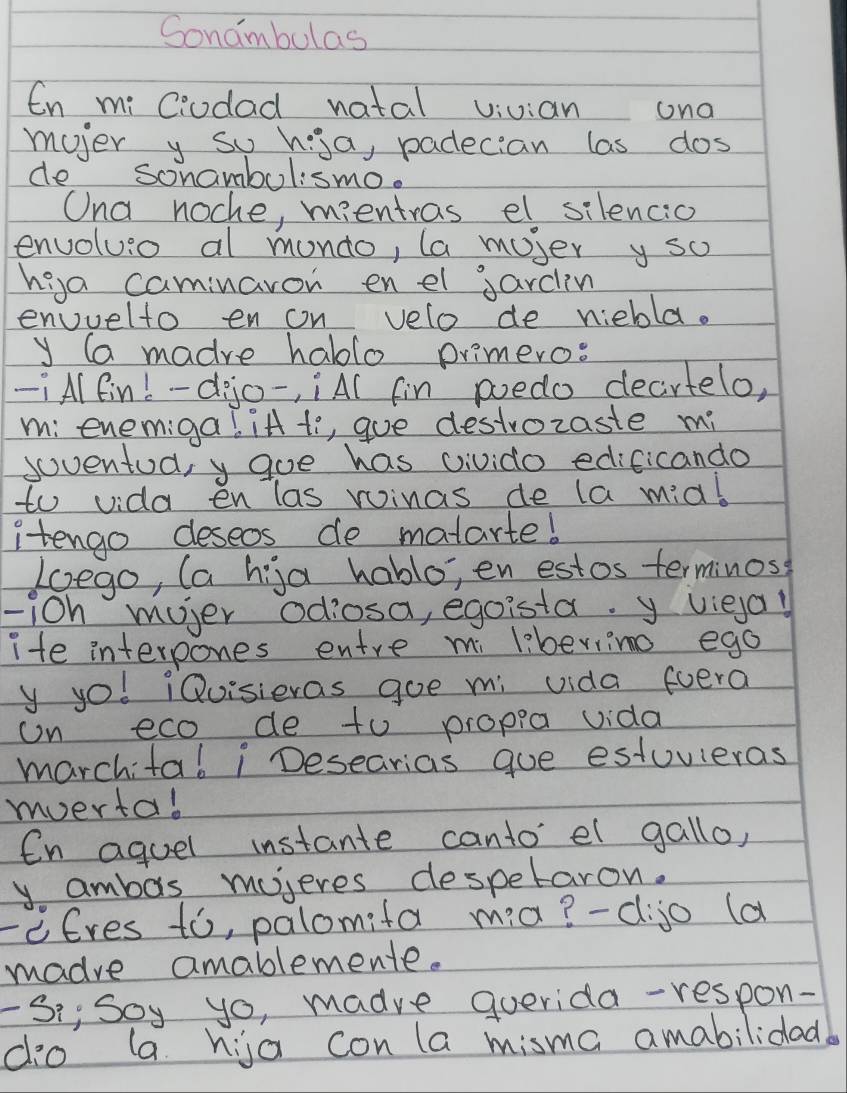 Sonámbulas
En mi Ciudad natal vivian una
mujer y su hija, padecian las dos
de sonambulismo.
Una noche, mientras el silencio
envolvio al mundo, la mujer y su
hija caminaron en el jardin
envuelto en un velo de niebla.
y la madre hablo primero:
-¡Al fin! -dijo-, ¡Al fin puedo deartelo,
mi enemiga! ¡A ti, que destrozaste mi
juventud, y que has vivido edificando
tu vida en las ruinas de la mia!
¡tengo deseos de matarte!
Luego, la hija hablo, en estos terminos:
-¡Oh mujer odiosa, egoista . y vieja!
¡te interpones entre mi liberrimo ego
y yo! ¡Quisieras que mi vida fuera
un eco de tu propia vida
marchita! ¡Desearias que estuvieras
muerta!
En aquel instante cantó el gallo,
y ambas mujeres despetaron.
-¿Eres tú, palomita mia? -dijo la
madre amablemente.
-Si; Soy yo, madre querida -respon-
dio la hija con la misma amabilidad.